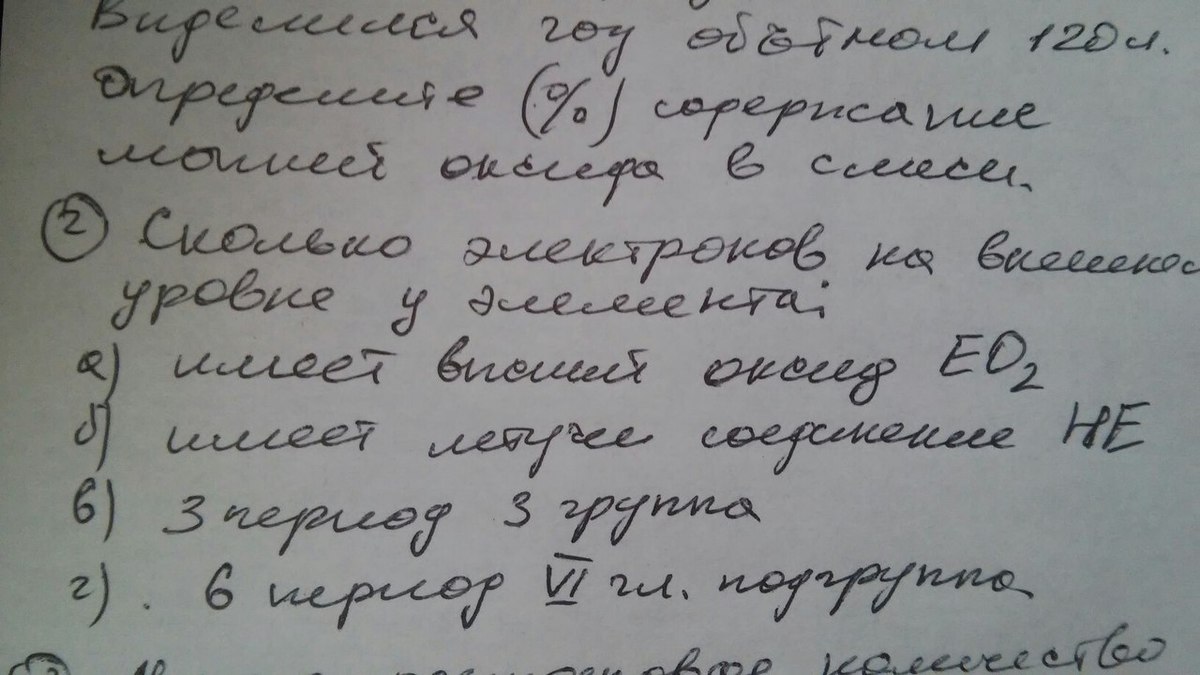 Выделился газ объёмом 120 л.
Определите (%) содержание
оксида в смеси.
② Сколько электронов на внешнем
уровне у элемента:
а) имеет высший оксид EO₂
б) имеет летучее соединение HE
в) 3 период 3 группа
г) . 6 период VI гл. подгруппа
количество